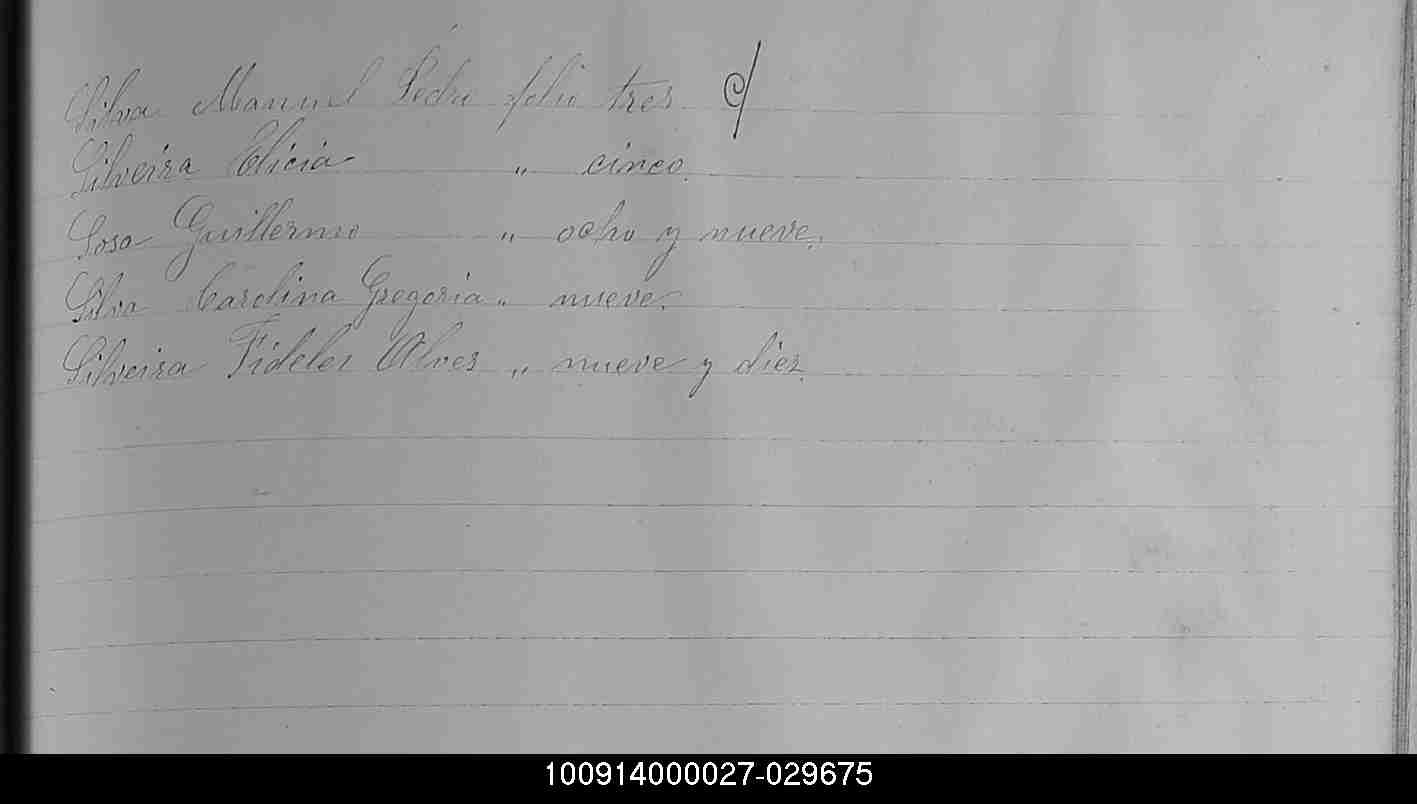 Silva Manuel Pedro folio tres
Silveira Elicia " cinco.
Sosa Guillermo " ocho y nueve.
Silva Carolina Gregoria " nueve.
Silveira Fideles Alves " nueve y diez.
100914000027-029675